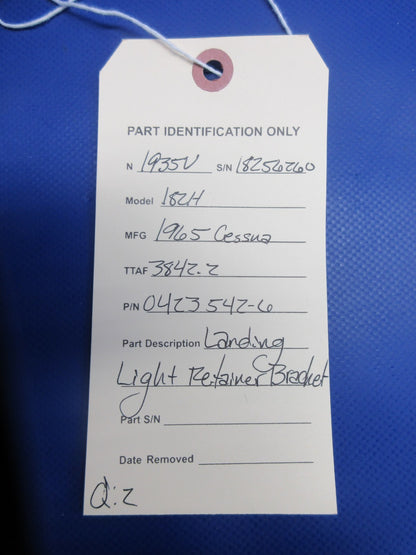 PART IDENTIFICATION ONLY
N 1935V S/N 18256260
Model 182H
MFG 1965 Cessna
TTAF 3842.2
P/N 0423542-6
Part Description Landing
Light Retainer Bracket
Part S/N
Date Removed
Q:2